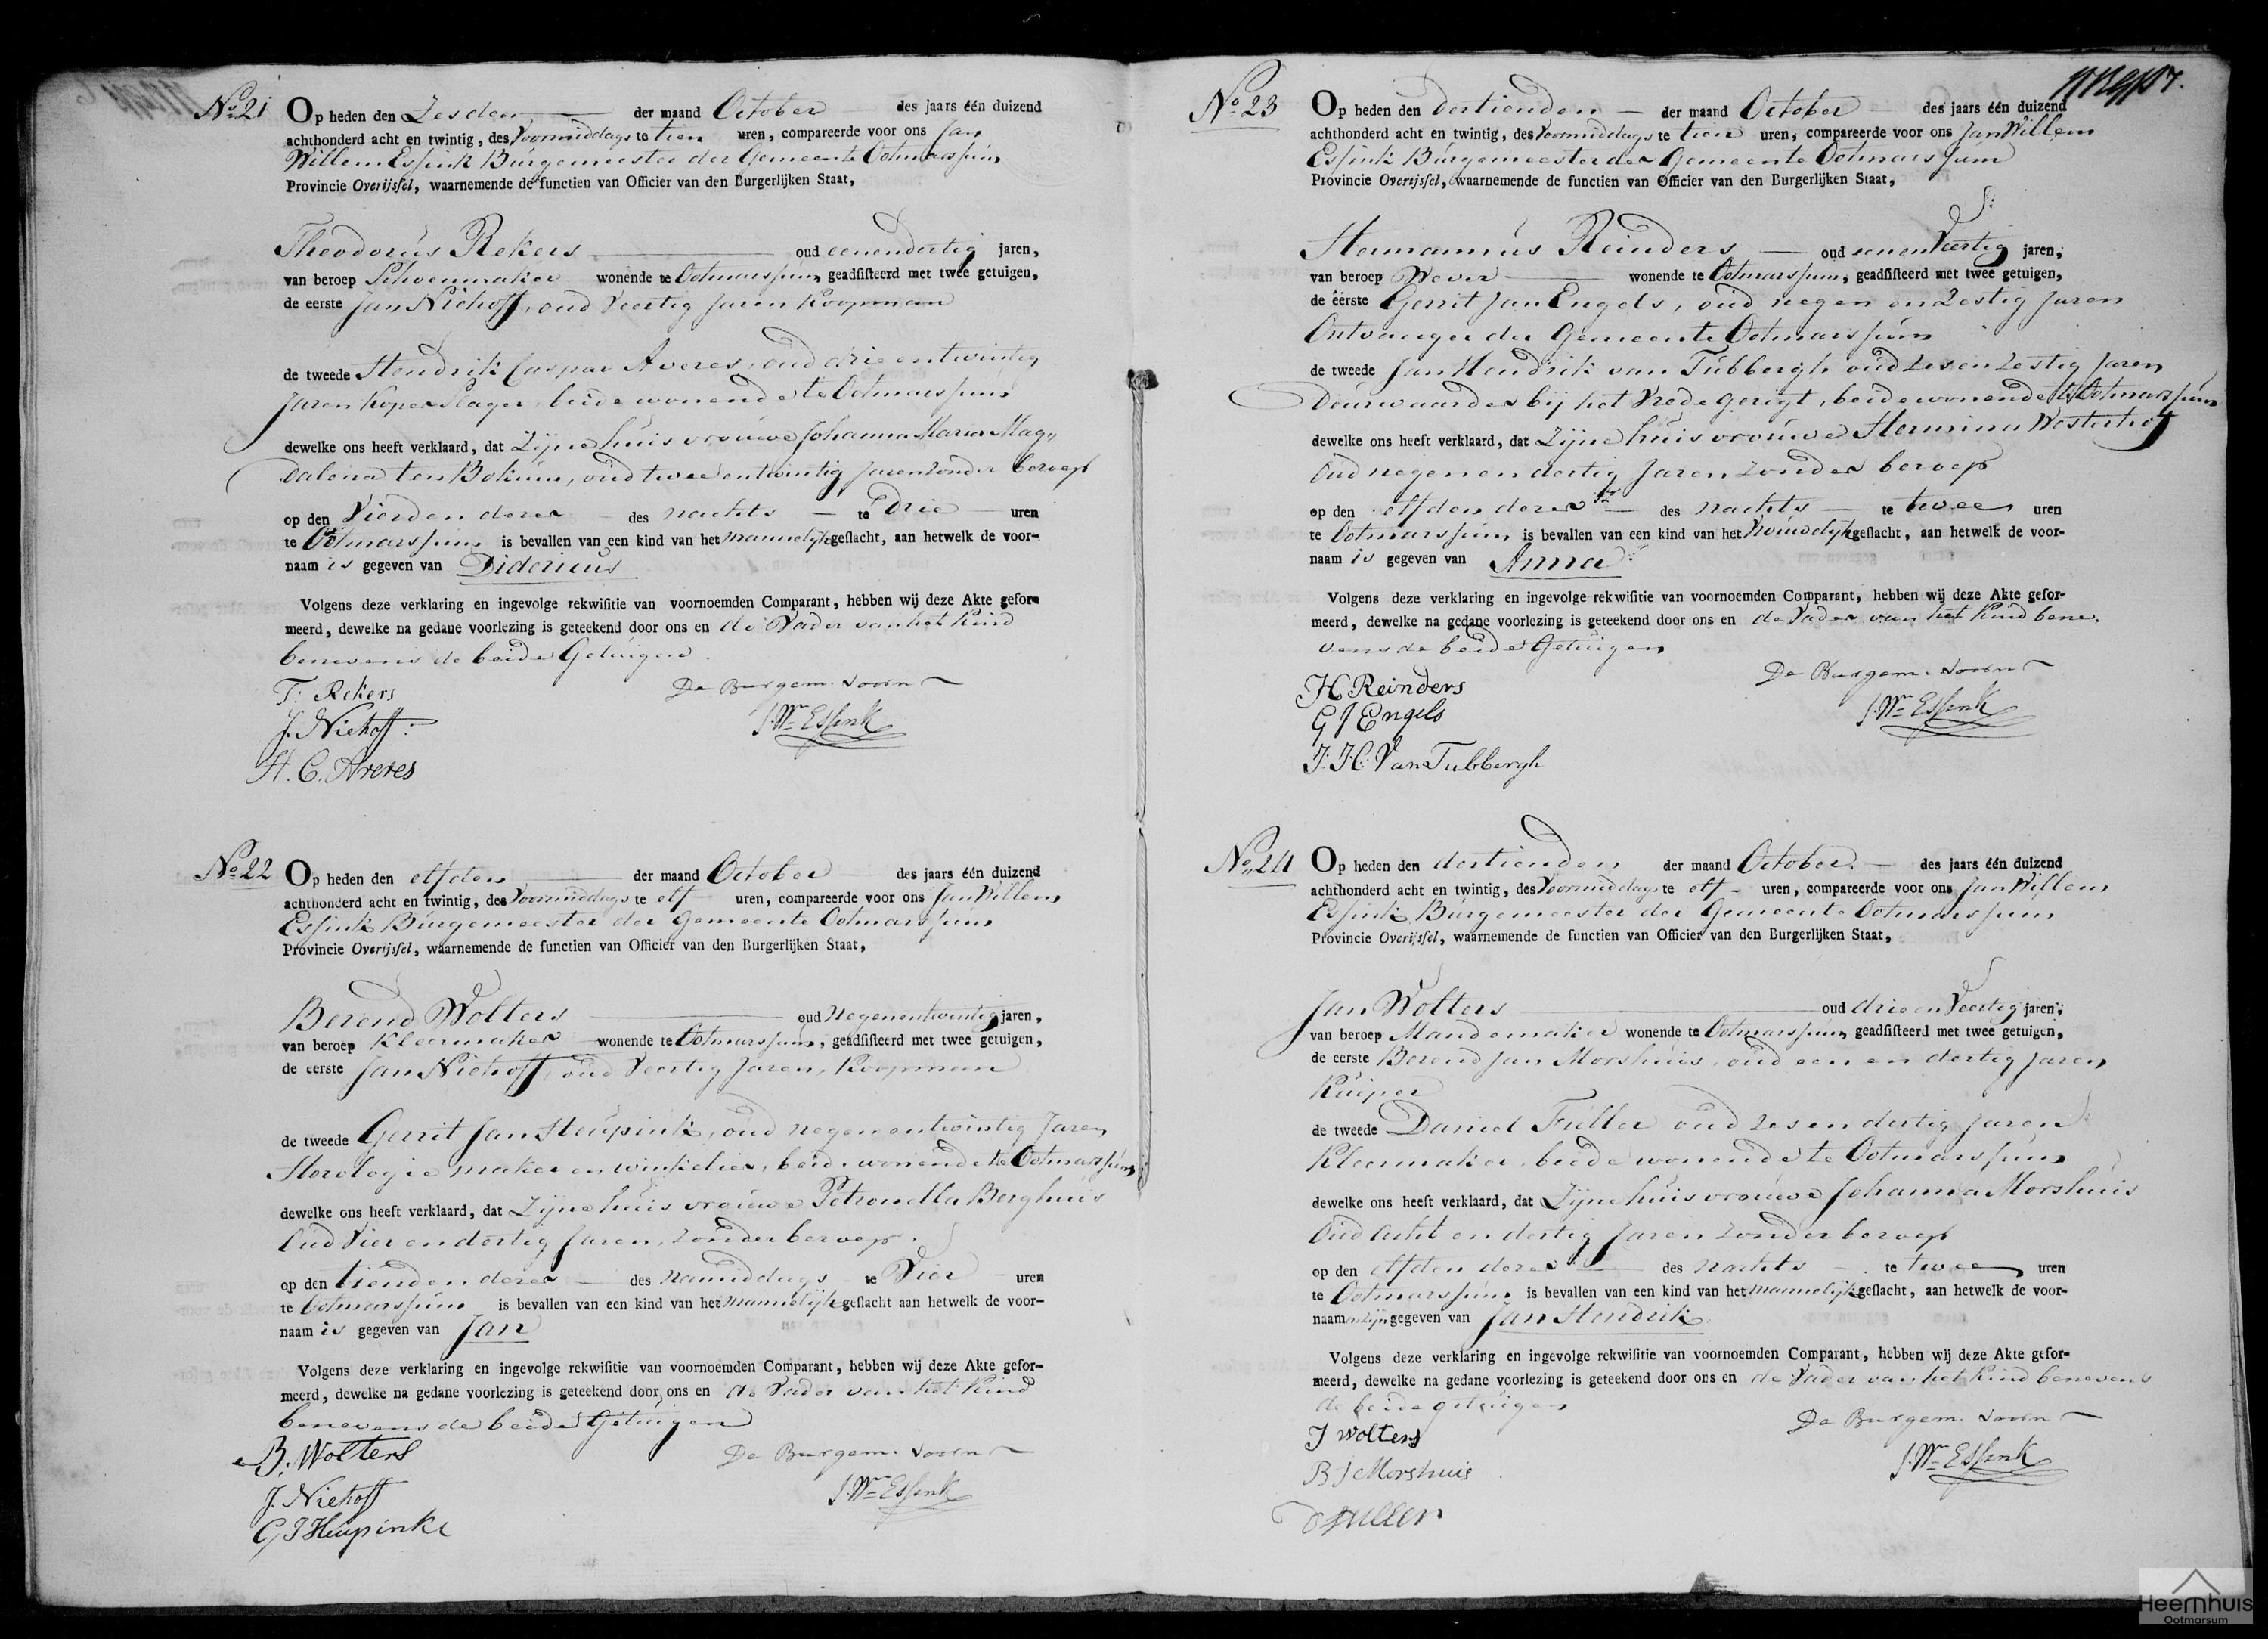 No 21 Op heden den Zesden der maand October des jaars één duizend
achthonderd acht en twintig, des Voormiddags te tien uren, compareerde voor ons Jan
Willem Essink Burgemeester der Gemeente Ootmarssum
Provincie Overijssel, waarnemende de functien van Officier van den Burgerlijken Staat,
Theodorus Rekers oud eenendertig jaren,
van beroep Schoenmaker wonende te Ootmarssum geadsisteerd met twee getuigen,
de eerste Jan Niehoff, oud Veertig Jaren Koopman
de tweede Hendrik Caspar Averes, oud drie en twintig
Jaren Koperslager, beide wonende te Ootmarssum
dewelke ons heeft verklaard, dat Zijne huisvrouwe Johanna Maria Mag„
dalena ten Bokum, oud twee entwintig Jaren zonder beroep
op den Vierden dezer des nachts te drie uren
te Ootmarssum is bevallen van een kind van het mannelijk geslacht, aan hetwelk de voor-
naam is gegeven van Didericus
Volgens deze verklaring en ingevolge rekwisitie van voornoemden Comparant, hebben wij deze Akte gefor-
meerd, dewelke na gedane voorlezing is geteekend door ons en de Vader van het Kind
benevens de beide Getuigen
T: Rekers De Burgem. voorn
J. Niehoff: J. Wm Essink
H. C. Averes
No 22 Op heden den elfden der maand October des jaars één duizend
achthonderd acht en twintig, des Voormiddags te elf uren, compareerde voor ons Jan Willem
Essink Burgemeester der Gemeente Ootmarssum
Provincie Overijssel, waarnemende de functien van Officier van den Burgerlijken Staat,
Berend Wolters oud negenentwintig jaren,
van beroep Kleermaker wonende te Ootmarssum, geadsisteerd met twee getuigen,
de eerste Jan Niehoff, oud Veertig Jaren, Koopman
de tweede Gerrit Jan Heupink, oud negenentwintig Jaren
Horologie maker en winkelier, beide wonende te Ootmarssum
dewelke ons heeft verklaard, dat Zijne huisvrouwe Petronella Berghuis
Oud Vier en dertig Jaren, zonder beroep.
op den tienden dezer des namiddags te Vier uren
te Ootmarssum is bevallen van een kind van het mannelijk geslacht aan hetwelk de voor-
naam is gegeven van Jan
Volgens deze verklaring en ingevolge rekwisitie van voornoemden Comparant, hebben wij deze Akte gefor-
meerd, dewelke na gedane voorlezing is geteekend door ons en de Vader van het Kind
benevens de beide Getuigen
B. Wolters De Burgem. voorn
J. Niehoff J. Wm Essink
G J Heupink
No 23 Op heden den dertienden der maand October des jaars één duizend
achthonderd acht en twintig, des Voormiddags te tien uren, compareerde voor ons Jan Willem
Essink Burgemeester der Gemeente Ootmarssum
Provincie Overijssel, waarnemende de functien van Officier van den Burgerlijken Staat,
Hermannus Reinders oud eenenVeertig jaren,
van beroep Wever wonende te Ootmarssum, geadsisteerd met twee getuigen,
de eerste Gerrit Jan Engels, oud negen en Zestig Jaren
Ontvanger der Gemeente Ootmarssum
de tweede Jan Hendrik van Tubbergh oud Zes en Zestig Jaren
Deurwaarder bij het Vredegerigt, beide wonende te Ootmarssum
dewelke ons heeft verklaard, dat Zijne huisvrouwe Hermina Westerhof
Oud negen en dertig Jaren zonder beroep
op den elfden dezer des nachts te twee uren
te Ootmarssum is bevallen van een kind van het Vrouwelijk geslacht, aan hetwelk de voor-
naam is gegeven van Anna
Volgens deze verklaring en ingevolge rekwisitie van voornoemden Comparant, hebben wij deze Akte gefor-
meerd, dewelke na gedane voorlezing is geteekend door ons en de Vader van het Kind bene„
vens de beide Getuigen
H Reinders De Burgem. voorn
G J Engels J. Wm Essink
J: H: Van Tubbergh
No 24 Op heden den dertienden der maand October des jaars één duizend
achthonderd acht en twintig, des Voormiddags te elf uren, compareerde voor ons Jan Willem
Essink Burgemeester der Gemeente Ootmarssum
Provincie Overijssel, waarnemende de functien van Officier van den Burgerlijken Staat,
Jan Wolters oud drie en Veertig jaren,
van beroep Mandemaker wonende te Ootmarssum geadsisteerd met twee getuigen,
de eerste Berend Jan Morshuis, oud een en dertig Jaren
Kuiper
de tweede Daniel Fuller oud zes en dertig Jaren
Kleermaker, beide wonende te Ootmarssum
dewelke ons heeft verklaard, dat Zijne huisvrouwe Johanna Morshuis
Oud acht en dertig Jaren zonder beroep
op den elfden dezer des nachts te twee uren
te Ootmarssum is bevallen van een kind van het mannelijk geslacht, aan hetwelk de voor-
naamen zijn gegeven van Jan Hendrik
Volgens deze verklaring en ingevolge rekwisitie van voornoemden Comparant, hebben wij deze Akte gefor-
meerd, dewelke na gedane voorlezing is geteekend door ons en de Vader van het Kind benevens
de beide getuigen
J Wolters De Burgem. voorn
B J Morshuis J. Wm Essink
D Fuller
Heemhuis
Ootmarsum